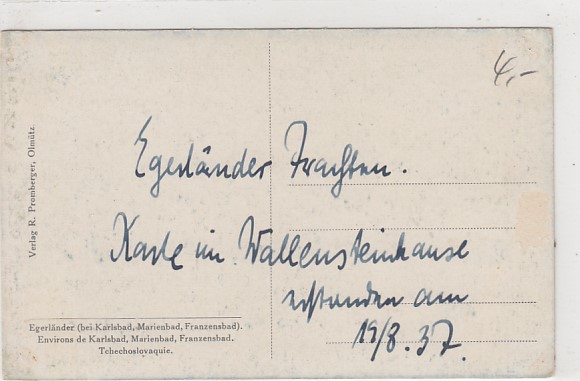 4,-
Egerländer Trachten.
Karte im Wallensteinhause
erstanden am
19/8.37.
Verlag R. Promberger, Olmütz.
Egerländer (bei Karlsbad, Marienbad, Franzensbad).
Environs de Karlsbad, Marienbad, Franzensbad.
Tchechoslovaquie.